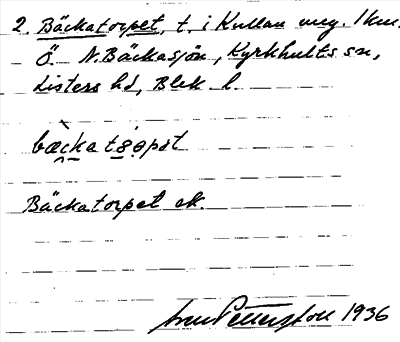 2. Bäckatorpet, t. i Kullan ung. 1 km.
Ö. N. Bäckasjön, Kyrkhults sn,
Listers hd, Blek. l.
Bäckatorpet ok.
1936